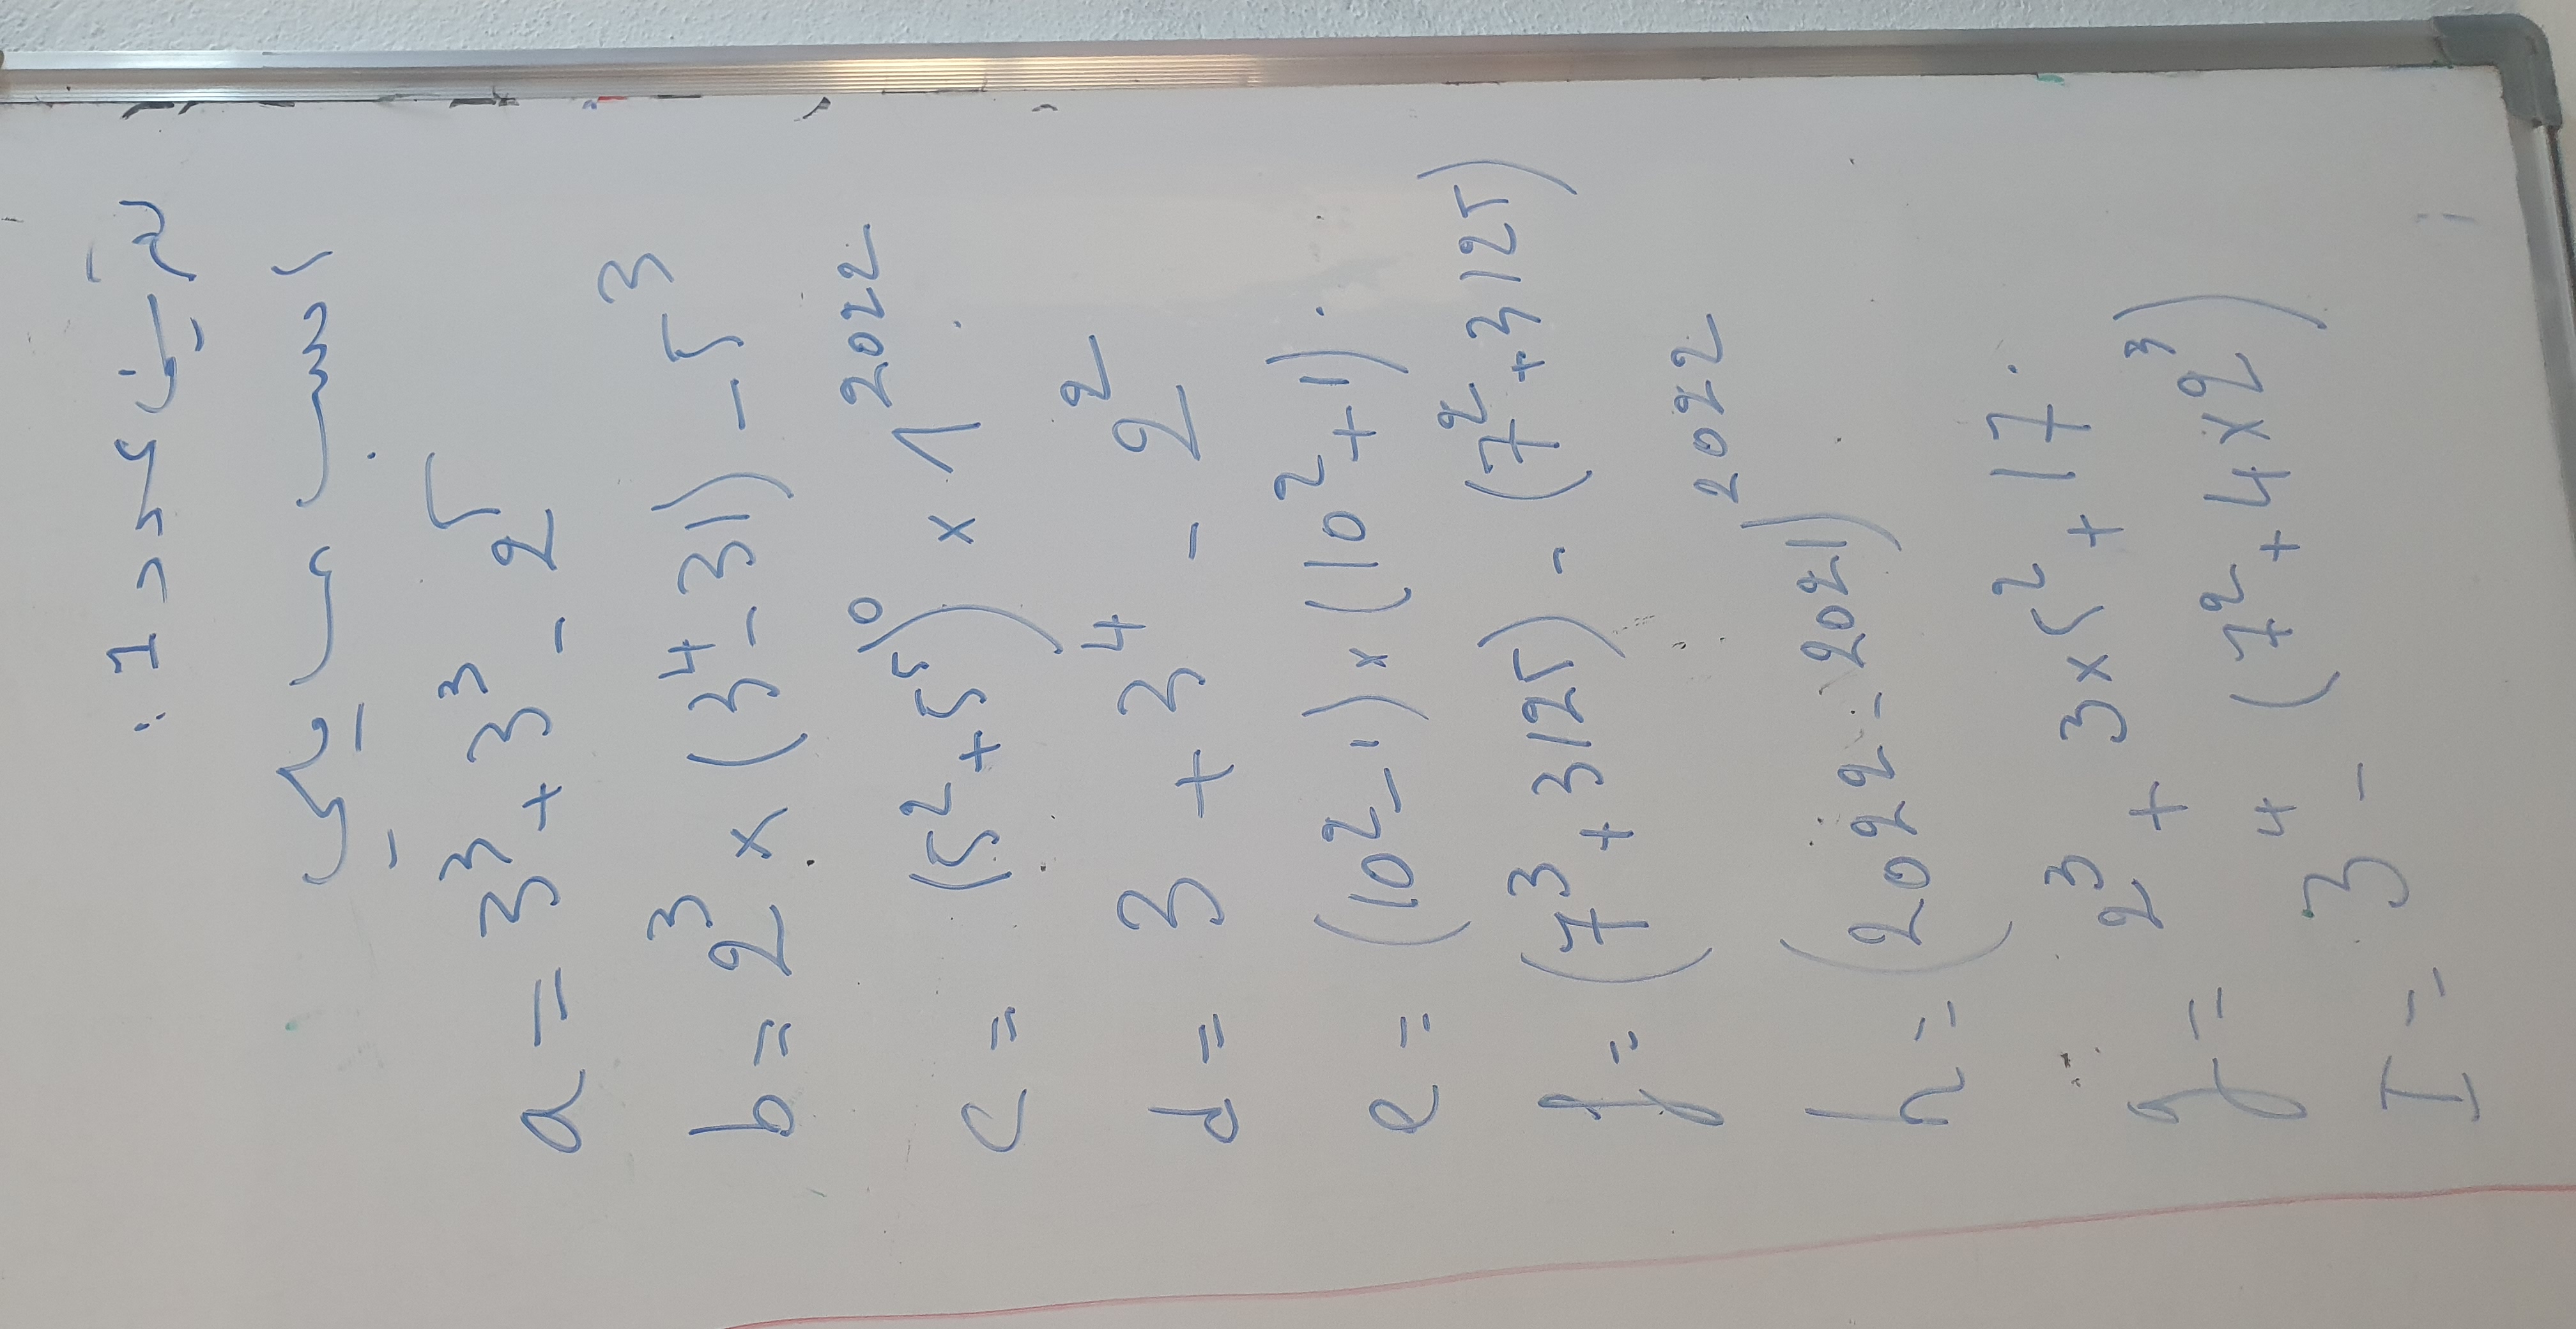 تمرين عدد 1 :
احسب
a = 3³ + 3³ - 2⁵
b = 2³ × (3⁴ - 31) - 5³
c = (5² + 5⁵)⁰ × 1²⁰²²
d = 3 + 3⁴ - 2²
e = (10² - 1) × (10² + 1).
f = (7³ + 3125) - (7² + 3125)
h = (2022 - 2021)²⁰²²
g = 2³ + 3 × 5² + 17.
I = 3⁴ - (7² + 4 × 2³)